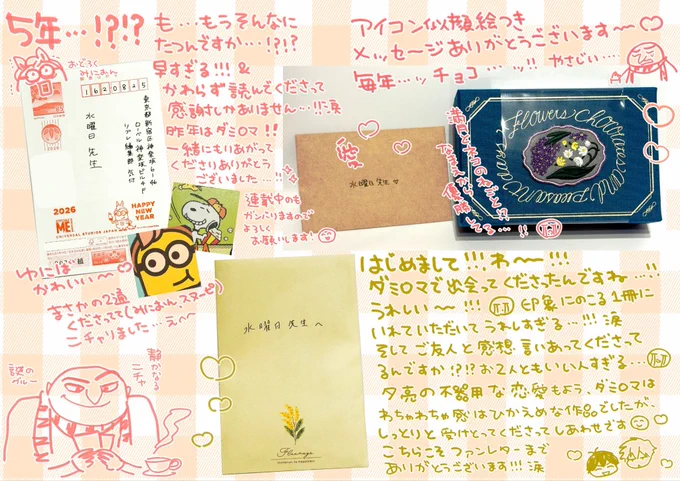 5年…!?!?
も…もうそんなに
たつんですか…!?!?
早すぎる!!! &
かわらず読んでくださって
感謝しかありません…!!涙
昨年はダミロマ!!
一緒にもりあがって
くださりありがとう
ございました…!!
連載中のも
ガンバりますので
よろしく
お願いします!
おどろく
みにおん
1620825
水曜日 先生
2026
HAPPY
NEW
YEAR
ME
UNIVERSAL STUDIOS JAPAN
ゆには
かわいい〜
まさかの2通
くださってて(みにおん、スヌーピー)
ニヤリました…えへ
謎の
グルー
静かなる
ニチャ
アイコン似顔絵つき
メッセージありがとうございます〜
毎年…ッチョコ…ッ!! やさしい…
愛
水曜日先生♡
Flowers
水曜日先生へ
はじめまして!!! わ〜!!!
ダミロマで出会ってくださったんですね…!!
うれしい〜!!! 印象にのこる1冊に
いれていただいてうれしすぎる…!!! 涙
そしてご友人と感想言いあってくださって
るんですか!?!? お2人ともいい人すぎる…
夕亮の不器用な恋愛もよう、ダミロマは
わちゃわちゃ感はひかえめな作品でしたが、
しっとりと受けとってくださってしあわせです
こちらこそファンレターまで
ありがとうございます!!! 涙